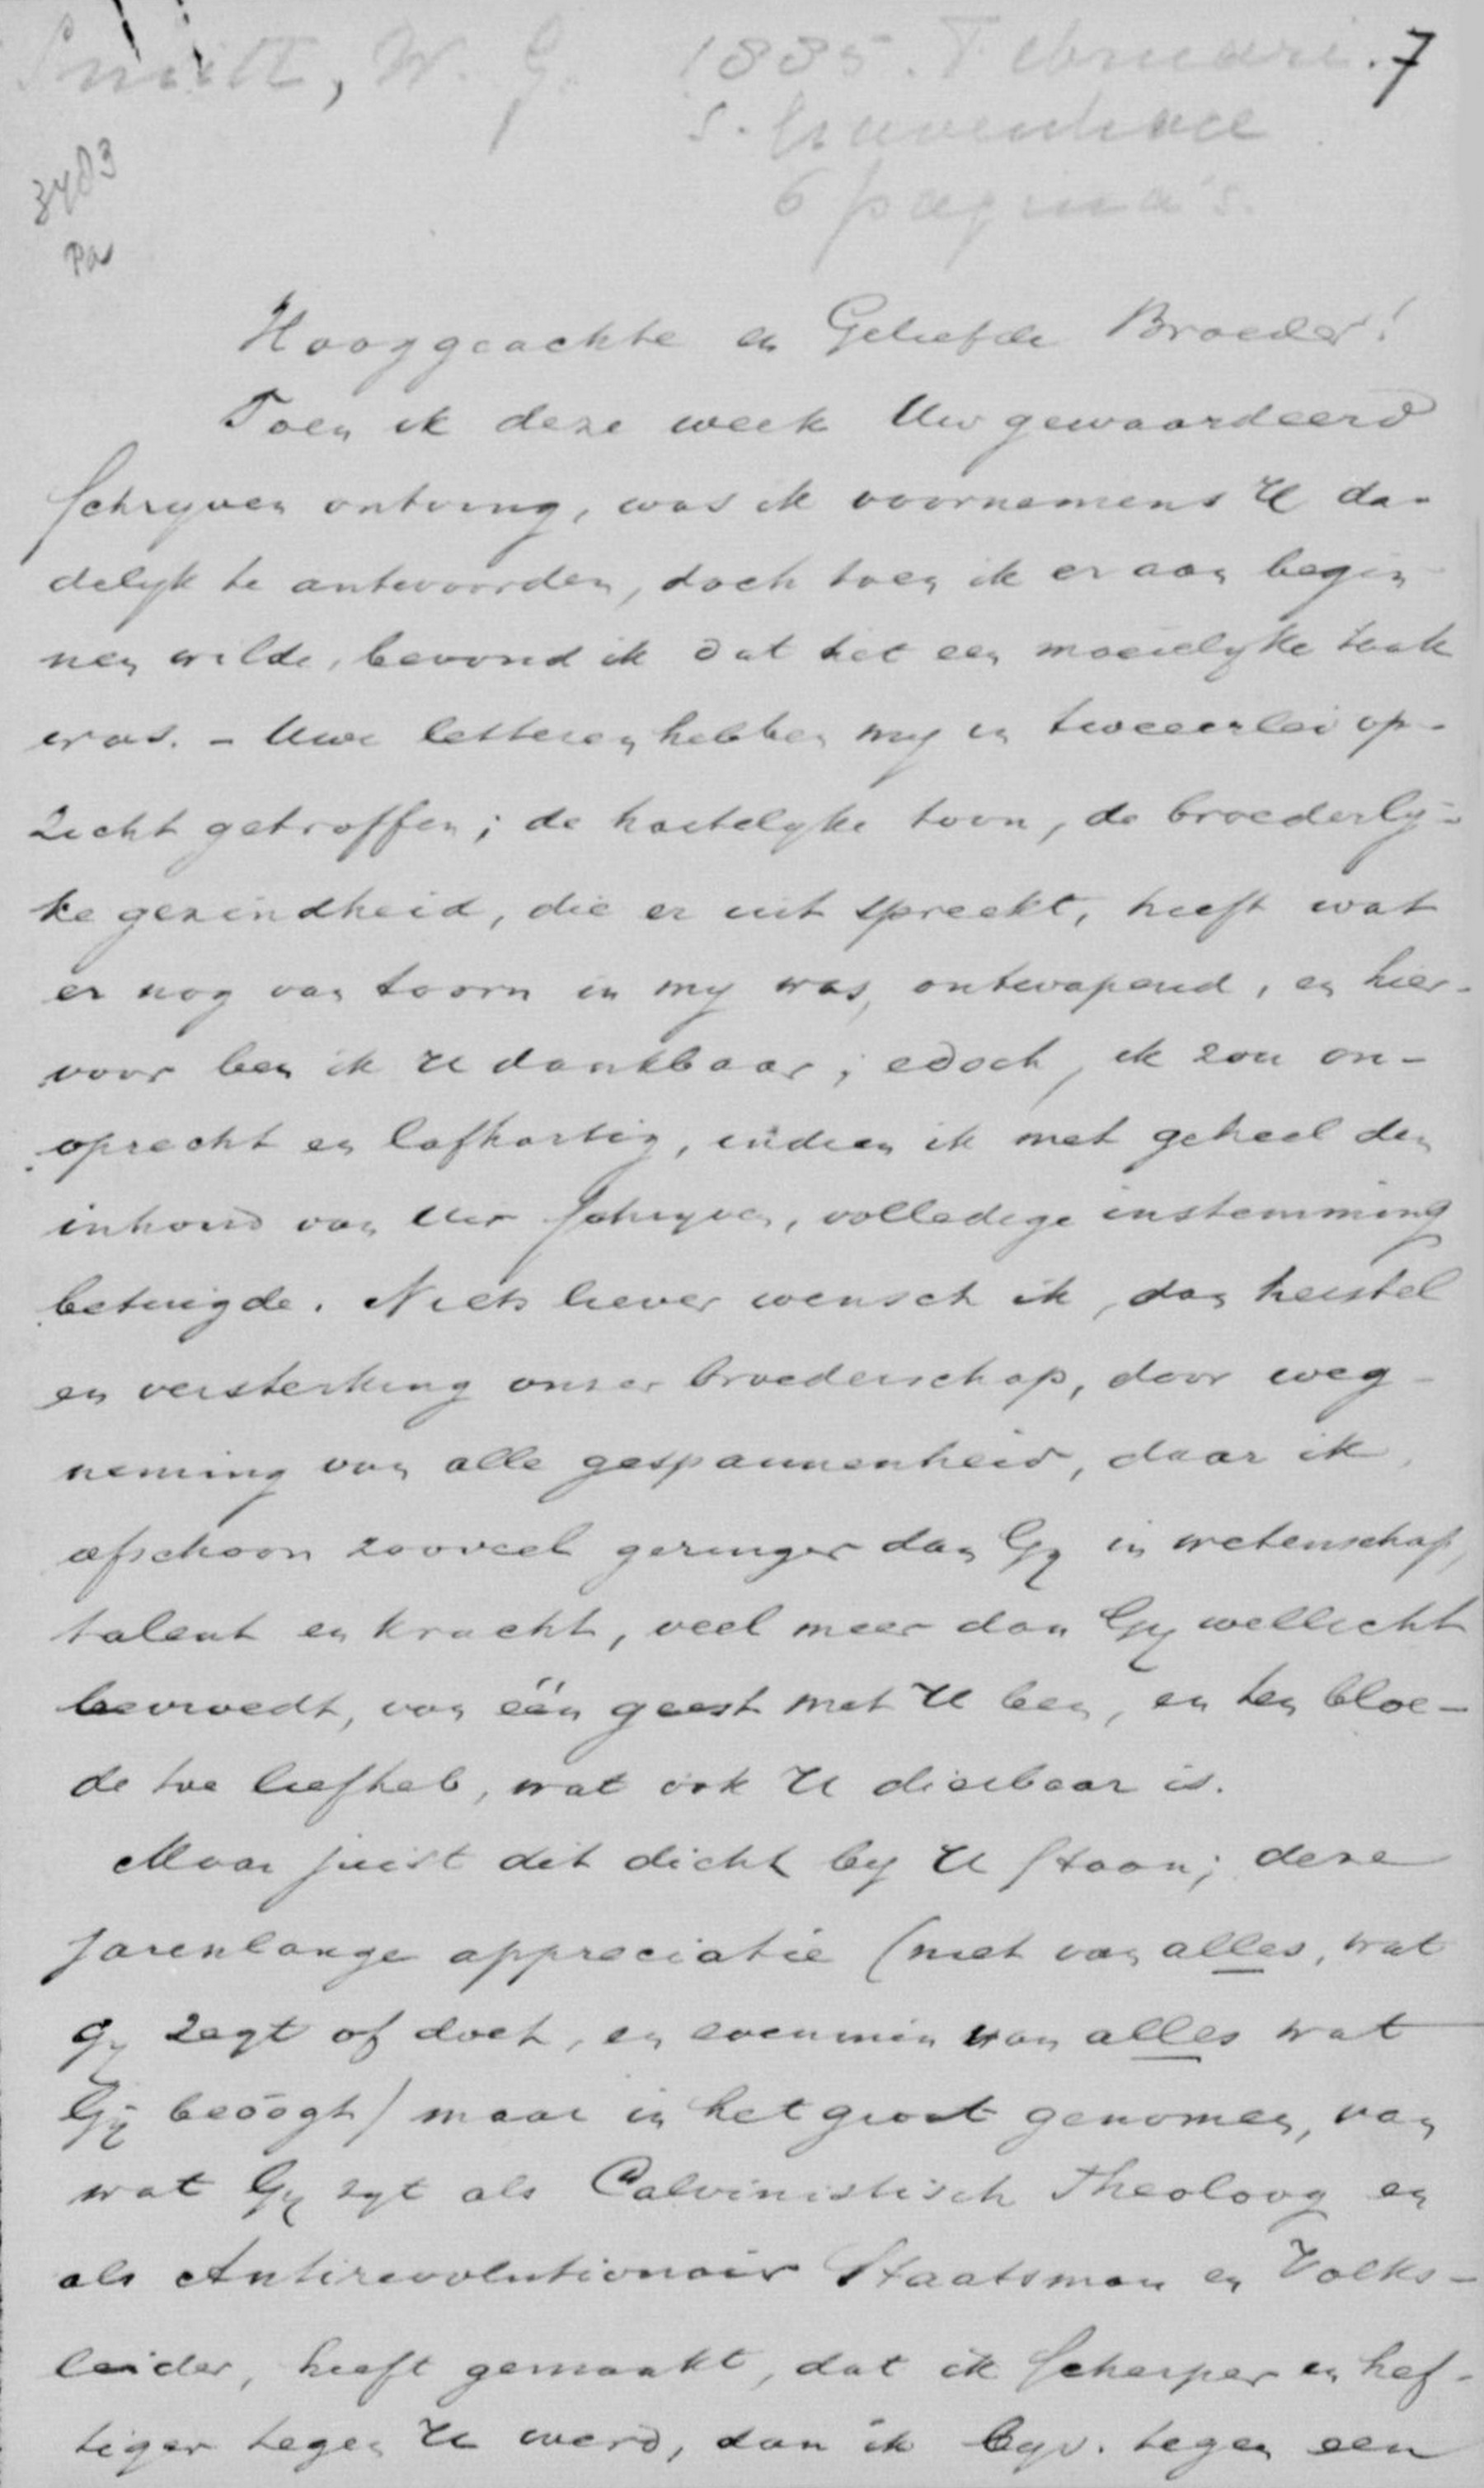 Smitt, W. G. 1885. Februari. 7
s. Gravenhage
6 pagina's.
3483
Pa
Hooggeachte en Geliefde Broeder!
Toen ik deze week Uw gewaardeerd
schryven ontving, was ik voornemens U da-
delyk te antwoorden, doch toen ik er aan begin
nen wilde, bevond ik dat het een moeielyke taak
was. – Uwe letteren hebben my in tweeerlei op-
zicht getroffen; de hartelyke toon, de broederly-
ke gezindheid, die er uit spreekt, heeft wat
er nog van toorn in my was, ontwapend, en hier-
voor ben ik U dankbaar; edoch, ik zou on-
oprecht en lafhartig, indien ik met geheel den
inhoud van Uw schryven, volledige instemming
betuigde. Niets liever wensch ik, dan herstel
en versterking onzer broederschap, door weg-
neming van alle gespannenheid, daar ik,
ofschoon zooveel geringer dan Gy in wetenschap,
talent en kracht, veel meer dan Gy wellicht
bevroedt, van één geest met U ben, en ten bloe-
de toe liefheb, wat ook U dierbaar is.
Maar juist dit dicht by U staan; deze
jarenlange appreciatie (niet van alles, wat
gy zegt of doet, en evenmin van alles wat
Gy beoogt) maar in het groot genomen, van
wat Gy zyt als Calvinistisch Theoloog en
als Antirevolutionair Staatsman en Volks-
leider, heeft gemaakt, dat ik scherper en hef-
tiger tegen U werd, dan ik byv. tegen een